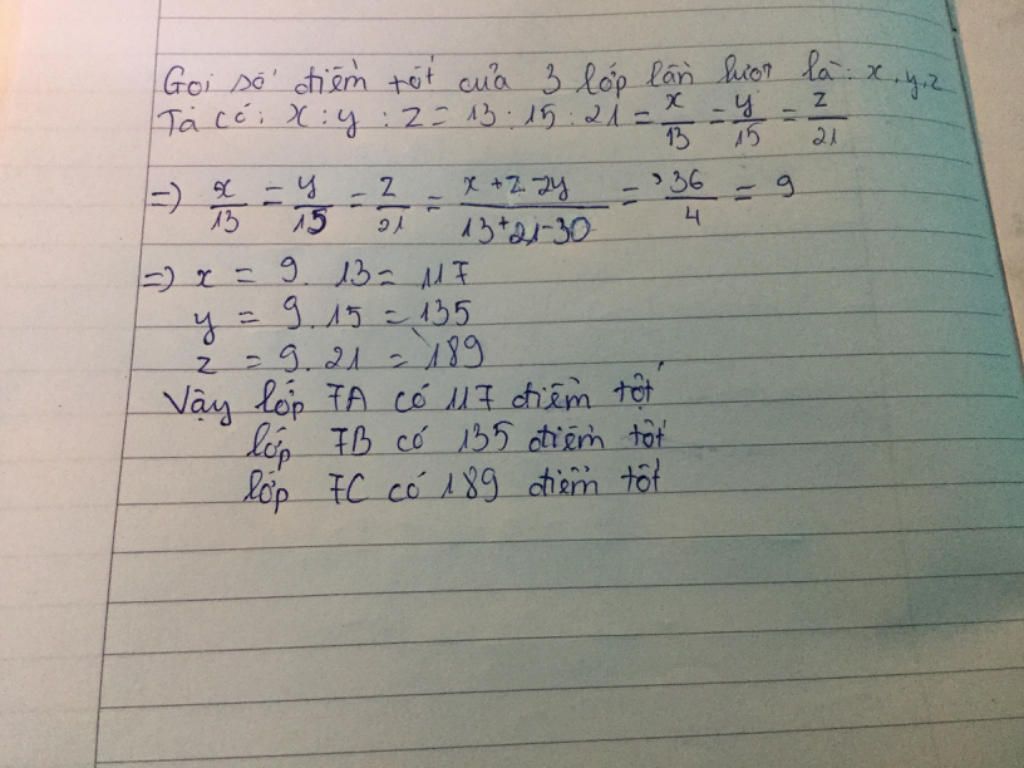 Gọi số điểm tốt của 3 lớp lần lượt là: x, y, z
Ta có: x : y : z = 13 : 15 : 21 = x/13 = y/15 = z/21
=> x/13 = y/15 = z/21 = x + z - 2y / 13 + 21 - 30 = 36/4 = 9
=> x = 9 . 13 = 117
y = 9 . 15 = 135
z = 9 . 21 = 189
Vậy lớp 7A có 117 điểm tốt
lớp 7B có 135 điểm tốt
lớp 7C có 189 điểm tốt